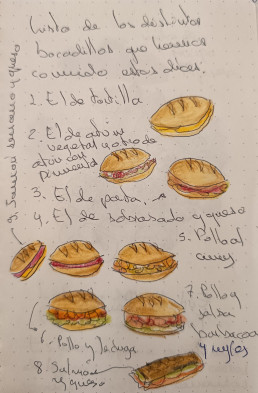 Lista de los distintos
bocadillos que hemos
comido estos días.
1. El de tortilla
2. El de atún
vegetal y otro de
atún con
pimiento
3. El de pasta.
4. El de sobrasada y queso
5. Pollo al
curry
6. Pollo y lechuga
7. Pollo y
salsa
barbacoa
8. Salmón
y queso
9. Jamón serrano y queso